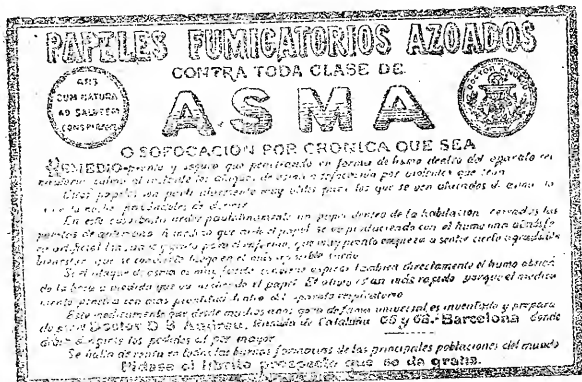 PAPELES FUMIGATORIOS AZOADOS
CONTRA TODA CLASE DE
ARS
CUM NATURA
AD SALUTEM
CONSPIRANS
ASMA
O SOFOCACIÓN POR CRÓNICA QUE SEA
REMEDIO pronto y seguro que penetrando en forma de humo dentro del aparato res
calma al instante los ataques de asma o sofocación por violentos que sean
Estos papeles son particularmente muy útiles para los que se ven atacados de asma
la noche, privándoles de dormir
En este caso basta arder paulatinamente un papel dentro de la habitación cerradas las
puertas de antemano. A medida que arde el papel se va produciendo con el humo una atmósfe
ra artificial y grata para el enfermo, que muy pronto empieza a sentir cierto agradable
bienestar que se convierte luego en el más apacible sueño
Si el ataque de asma es muy fuerte conviene aspirar también directamente el humo
de la boca a medida que va ardiendo el papel. El alivio es aun más rápido porque el medica
mento penetra con más prontitud dentro del aparato respiratorio
Este medicamento que desde muchos años goza de fama universal, es inventado y prepara
do por el Doctor D. S. Andreu, Rambla de Cataluña 66 y 68.-Barcelona donde
deben dirigirse los pedidos al por mayor
Se halla de venta en todas las buenas farmacias de las principales poblaciones del mundo
Pídase el librito prospecto que se da gratis.